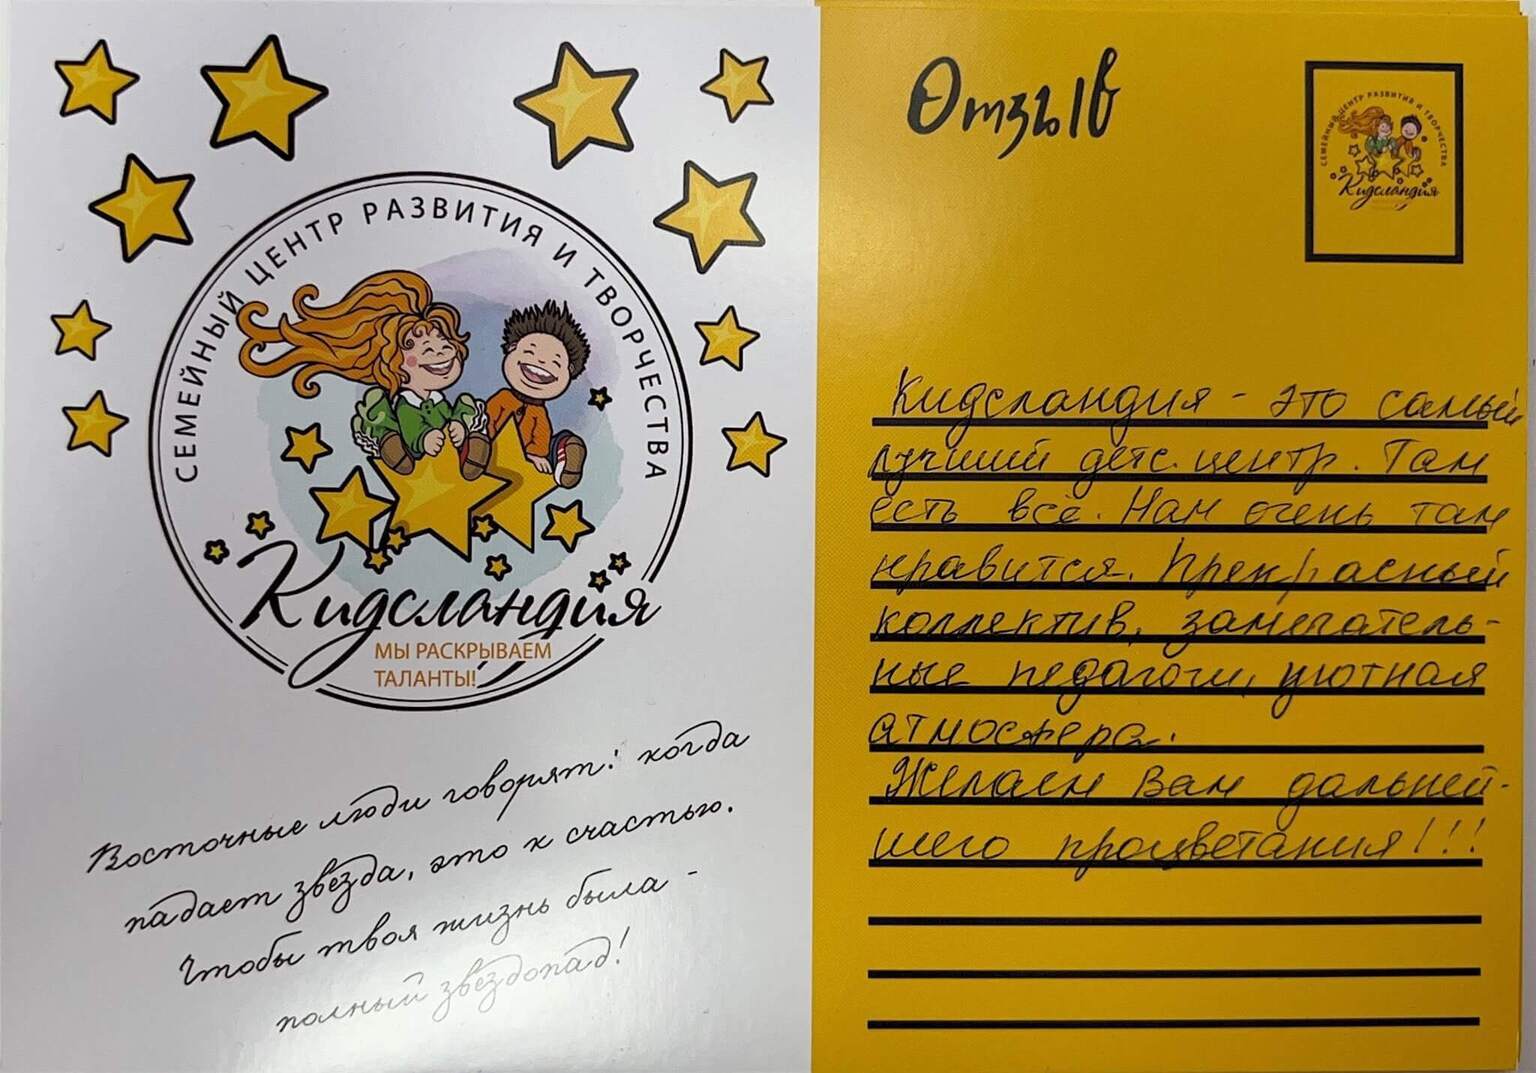 СЕМЕЙНЫЙ ЦЕНТР РАЗВИТИЯ И ТВОРЧЕСТВА
Кидсландия
МЫ РАСКРЫВАЕМ
ТАЛАНТЫ!
Восточные люди говорят: когда
падает звезда, это к счастью.
Чтобы твоя жизнь была -
полный звездопад!
Отзыв
СЕМЕЙНЫЙ ЦЕНТР РАЗВИТИЯ И ТВОРЧЕСТВА
Кидсландия
Кидсландия - это самый
лучший детс. центр. Там
есть всё. Нам очень там
нравится. Прекрасный
коллектив, замечатель-
ные педагоги, уютная
атмосфера.
Желаем Вам дальней-
шего процветания!!!